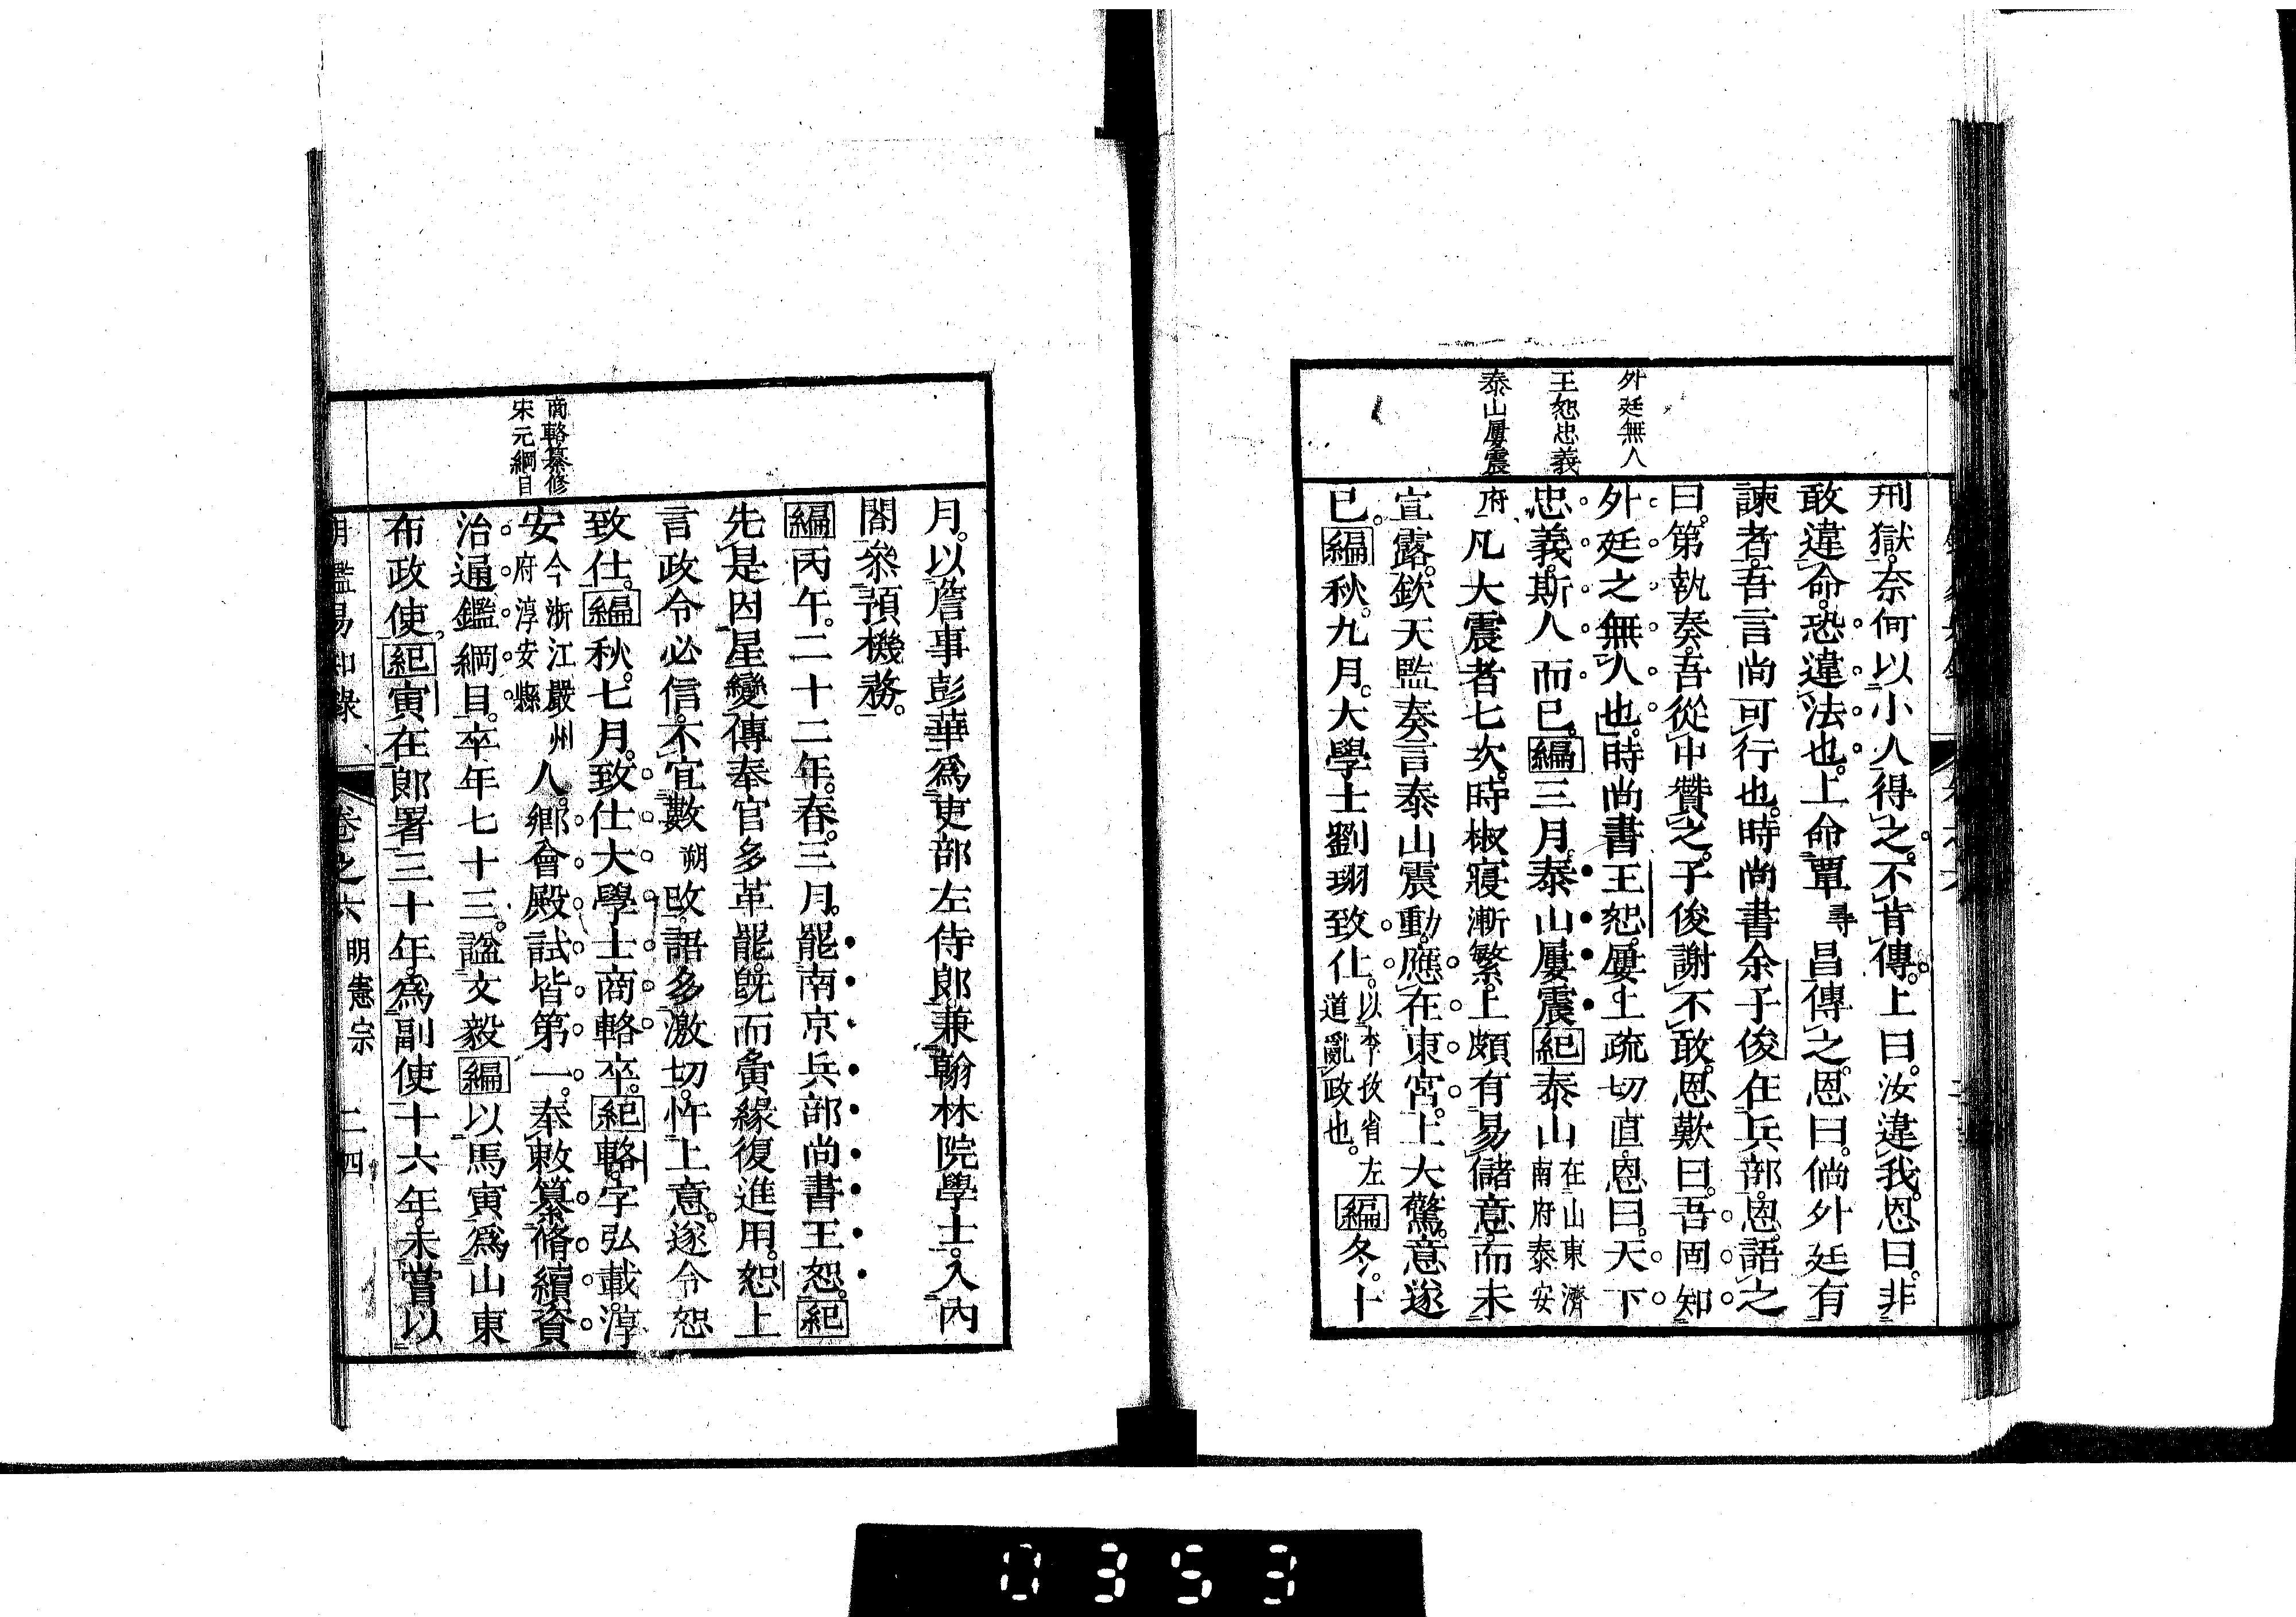 外廷無人
王恕忠義
泰山屢震
刑獄。奈何以小人得之。不肯傳。上曰。汝違我。恩曰。非
敢違命。恐違法也。上命覃尋昌傳之。恩曰。倘外廷有
諫者。吾言尚可行也。時尚書余子俊在兵部。恩語之
曰。第執奏。吾從中贊之。子俊謝不敢。恩歎曰。吾固知
外廷之無人也。時尚書王恕。屢上疏切直。恩曰。天下
忠義。斯人而已。編三月。泰山屢震紀泰山在山東濟南府泰安
府凡大震者七次。時椒寢漸繁。上頗有易儲意。而未
宣露。欽天監奏言泰山震動。應在東宮。上大驚。意遂
已。編秋。九月。大學士劉珝致仕。以李孜省左道亂政也。編冬。十
商輅纂修
宋元綱目
月。以詹事彭華爲吏部左侍郎。兼翰林院學士。入內
閣參預機務。
編丙午。二十二年。春。三月。罷南京兵部尚書王恕。紀
先是因星變。傳奉官多革罷。旣而夤緣復進用。恕上
言政令必信。不宜數朔改。語多激切。忤上意。遂令恕
致仕。編秋。七月。致仕大學士商輅卒。紀輅。字弘載。淳
安今浙江嚴州府淳安縣人。鄉會殿試皆第一。奉敕纂脩續資
治通鑑綱目。卒年七十三。諡文毅編以馬寅爲山東
布政使。紀寅在郎署三十年。爲副使十六年。未嘗以
明鑑易知錄 卷之六 明憲宗 二四
0353